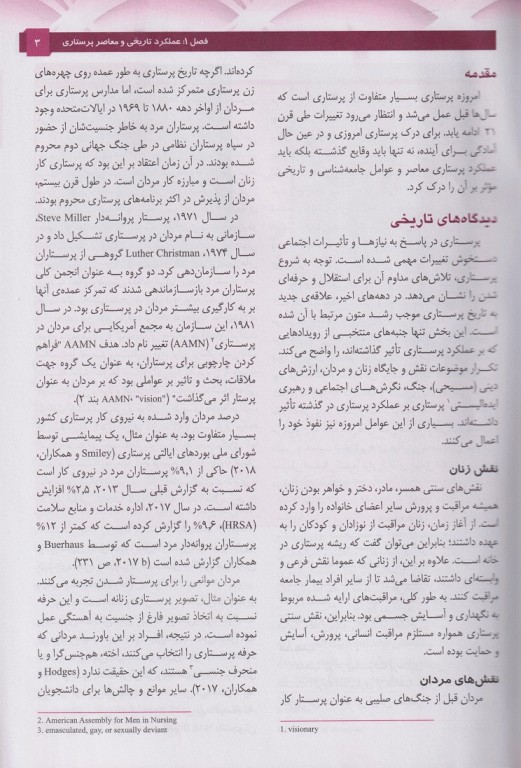 فصل ۱: عملکرد تاریخی و معاصر پرستاری
۳
مقدمه
امروزه پرستاری بسیار متفاوت از پرستاری است که
سال‌ها قبل عمل می‌شد و انتظار می‌رود تغییرات طی قرن
۲۱ ادامه یابد. برای درک پرستاری امروزی و در عین حال
آمادگی برای آینده، نه تنها باید وقایع گذشته بلکه باید
عملکرد پرستاری معاصر و عوامل جامعه‌شناسی و تاریخی
مؤثر بر آن را درک کرد.
دیدگاه‌های تاریخی
پرستاری در پاسخ به نیازها و تأثیرات اجتماعی
دستخوش تغییرات مهمی شده است. توجه به شروع
پرستاری، تلاش‌های مداوم آن برای استقلال و حرفه‌ای
شدن را نشان می‌دهد. در دهه‌های اخیر، علاقه‌ی جدید
به تاریخ پرستاری موجب رشد متون مرتبط با آن شده
است. این بخش تنها جنبه‌های منتخبی از رویدادهایی
که بر عملکرد پرستاری تأثیر گذاشته‌اند، را واضح می‌کند.
تکرار موضوعات نقش و جایگاه زنان و مردان، ارزش‌های
دینی (مسیحی)، جنگ، نگرش‌های اجتماعی و رهبری
ایده‌الیستی۱ پرستاری بر عملکرد پرستاری در گذشته تأثیر
داشته‌اند. بسیاری از این عوامل امروزه نیز نفوذ خود را
اعمال می‌کنند.
نقش زنان
نقش‌های سنتی همسر، مادر، دختر و خواهر بودن زنان،
همیشه مراقبت و پرورش سایر اعضای خانواده را وارد کرده
است. از آغاز زمان، زنان مراقبت از نوزادان و کودکان را به
عهده داشتند؛ بنابراین می‌توان گفت که ریشه پرستاری در
خانه است. علاوه بر این، از زنانی که عموما نقش فرعی و
وابسته‌ای داشتند، تقاضا می‌شد تا از سایر افراد بیمار جامعه
مراقبت کنند. به طور کلی، مراقبت‌های ارایه شده مربوط
به نگهداری و آسایش جسمی بود. بنابراین، نقش سنتی
پرستاری همواره مستلزم مراقبت انسانی، پرورش، آسایش
و حمایت بوده است.
نقش‌های مردان
مردان قبل از جنگ‌های صلیبی به عنوان پرستار کار
1. visionary
کرده‌اند. اگرچه تاریخ پرستاری به طور عمده روی چهره‌های
زن پرستاری متمرکز شده است، اما مدارس پرستاری برای
مردان از اواخر دهه ۱۸۸۰ تا ۱۹۶۹ در ایالات‌متحده وجود
داشته است. پرستاران مرد به خاطر جنسیت‌شان از حضور
در سپاه پرستاران نظامی در طی جنگ جهانی دوم محروم
شده بودند. در آن زمان اعتقاد بر این بود که پرستاری کار
زنان است و مبارزه کار مردان است. در طول قرن بیستم،
مردان از پذیرش در اکثر برنامه‌های پرستاری محروم بودند.
در سال ۱۹۷۱، پرستار پروانه‌دار Steve Miller،
سازمانی به نام مردان در پرستاری تشکیل داد و در
سال ۱۹۷۴، Luther Christman گروهی از پرستاران
مرد را سازمان‌دهی کرد. دو گروه به عنوان انجمن کلی
پرستاران مرد بازسازماندهی شدند که تمرکز عمده‌ی آنها
بر به کارگیری بیشتر مردان در پرستاری بود. در سال
۱۹۸۱، این سازمان به مجمع آمریکایی برای مردان در
پرستاری۲ (AAMN) تغییر نام داد. هدف AAMN "فراهم
کردن چارچوبی برای پرستاران، به عنوان یک گروه جهت
ملاقات، بحث و تاثیر بر عواملی بود که بر مردان به عنوان
پرستار اثر می‌گذاشت" (AAMN، "vision" بند ۲).
درصد مردان وارد شده به نیروی کار پرستاری کشور
بسیار متفاوت بود. به عنوان مثال، یک پیمایشی توسط
شورای ملی بوردهای ایالتی پرستاری (Smiley و همکاران،
۲۰۱۸) حاکی از ۹,۱% پرستاران مرد در نیروی کار است
که نسبت به گزارش قبلی سال ۲۰۱۳، ۲,۵% افزایش
داشته است. در سال ۲۰۱۷، اداره خدمات و منابع سلامت
(HRSA)، ۹,۶% را گزارش کرده است که کمتر از ۱۲%
پرستاران پروانه‌دار مرد است که توسط Buerhaus و
همکاران گزارش شده است (۲۰۱۷ b، ص ۲۳۱).
مردان موانعی را برای پرستار شدن تجربه می‌کنند.
به عنوان مثال، تصویر پرستاری زنانه است و این حرفه
نسبت به اتخاذ تصویر فارغ از جنسیت به آهستگی عمل
نموده است. در نتیجه، افراد بر این باورند مردانی که
حرفه پرستاری را انتخاب می‌کنند، اخته، هم‌جنس‌گرا و یا
منحرف جنسی۳ هستند، که این حقیقت ندارد (Hodges و
همکاران، ۲۰۱۷). سایر موانع و چالش‌ها برای دانشجویان
2. American Assembly for Men in Nursing
3. emasculated, gay, or sexually deviant